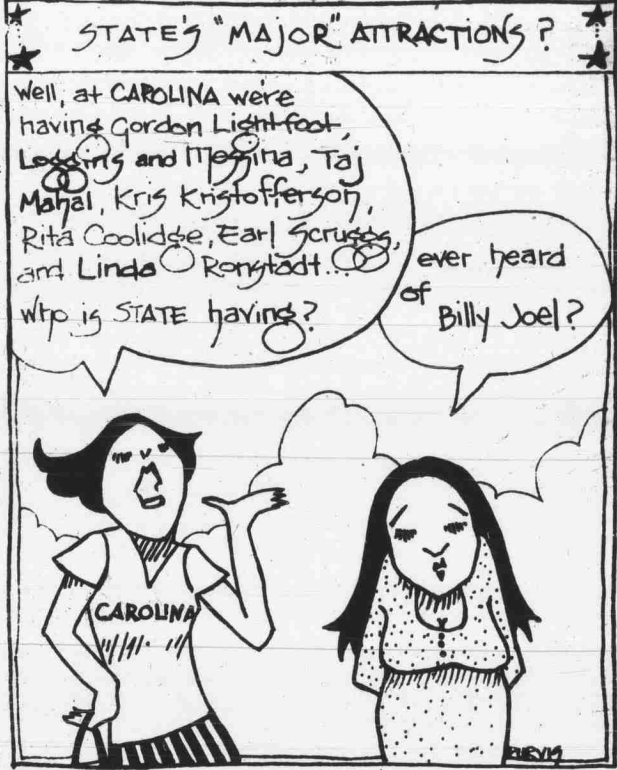 STATE'S "MAJOR" ATTRACTIONS?
Well, at CAROLINA we're
having Gordon Lightfoot,
Loggins and Messina, Taj
Mahal, Kris Kristofferson,
Rita Coolidge, Earl Scruggs,
and Linda Ronstadt...
Who is STATE having?
ever heard
of
Billy Joel?
CAROLINA
PURVIS